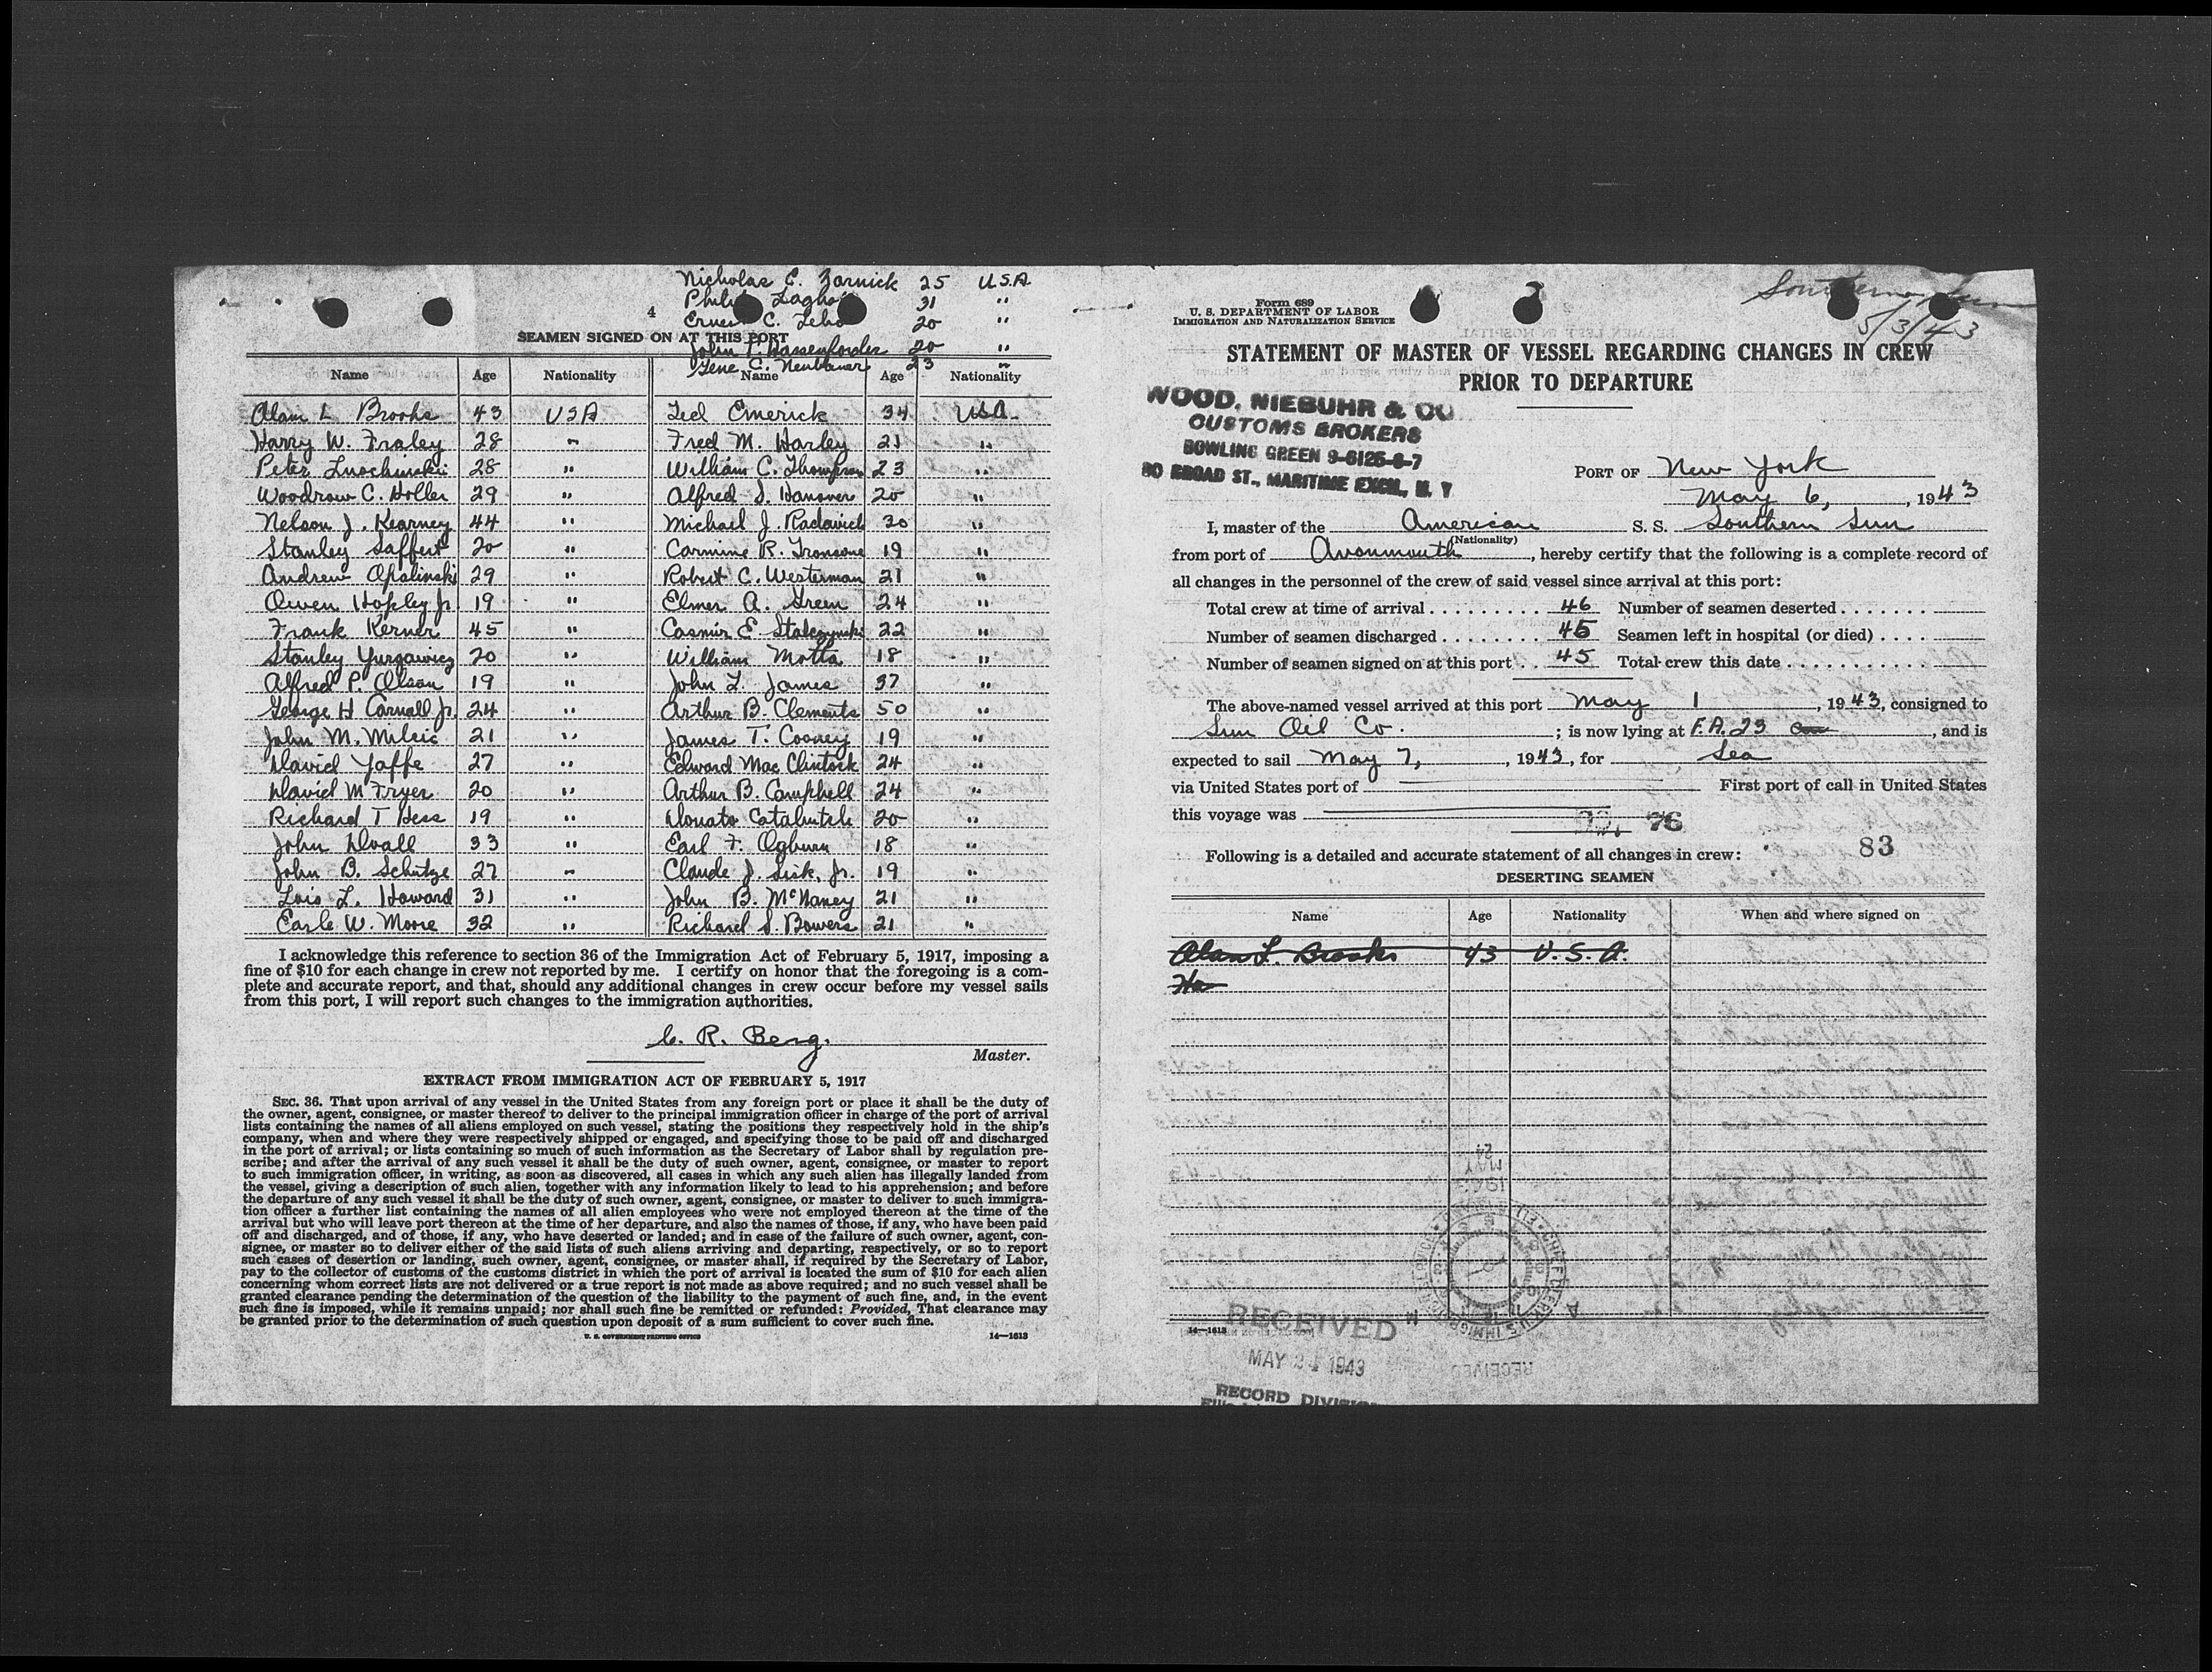 Nicholas C. Zarnick 25 U.S.A.
31 "
C. 20 "
4
SEAMEN SIGNED ON AT THIS PORT
John P. 20 "
Gene C. Neubauer 23 "
Name Age Nationality Name Age Nationality
Alan L Brooks 43 USA Ted Emerick 34 USA
Harry W. Fraley 28 " Fred M. Harley 21 "
Peter 28 " William C. Thompson 23 "
Woodrow C. Holler 29 " Alfred S. Hanover 20 "
Nelson J. Kearney 44 " Michael J. Radavich 30 "
Stanley Saffert 20 " Carmine R. Tronsone 19 "
Andrew Opslinski 29 " Robert C. Westerman 21 "
Owen Hopley Jr. 19 " Elmer A. Green 24 "
Frank Kerner 45 " Casmir E. 22 "
Stanley Yurgawicz 20 " William Motta 18 "
Alfred P. Olson 19 " John L. James 37 "
George H Carnall Jr. 24 " Arthur B. Clements 50 "
John M. Milcic 21 " James T. Cooney 19 "
David Yaffe 27 " Edward Mac Clintock 24 "
David M Fryer 20 " Arthur B. Campbell 24 "
Richard T Hess 19 " Donato 20 "
John Duall 33 " Earl F. Ogburn 18 "
John B. Schutze 27 " Claude J. Sisk, Jr. 19 "
Lois L. Howard 31 " John B. McNaney 21 "
Earle W. Moore 32 " Richard S. Bowers 21 "
I acknowledge this reference to section 36 of the Immigration Act of February 5, 1917, imposing a
fine of $10 for each change in crew not reported by me. I certify on honor that the foregoing is a com-
plete and accurate report, and that, should any additional changes in crew occur before my vessel sails
from this port, I will report such changes to the immigration authorities.
C. R. Berg.
Master.
EXTRACT FROM IMMIGRATION ACT OF FEBRUARY 5, 1917
SEC. 36. That upon arrival of any vessel in the United States from any foreign port or place it shall be the duty of
the owner, agent, consignee, or master thereof to deliver to the principal immigration officer in charge of the port of arrival
lists containing the names of all aliens employed on such vessel, stating the positions they respectively hold in the ship's
company, when and where they were respectively shipped or engaged, and specifying those to be paid off and discharged
in the port of arrival; or lists containing so much of such information as the Secretary of Labor shall by regulation pre-
scribe; and after the arrival of any such vessel it shall be the duty of such owner, agent, consignee, or master to report
to such immigration officer, in writing, as soon as discovered, all cases in which any such alien has illegally landed from
the vessel, giving a description of such alien, together with any information likely to lead to his apprehension; and before
the departure of any such vessel it shall be the duty of such owner, agent, consignee, or master to deliver to such immigra-
tion officer a further list containing the names of all alien employees who were not employed thereon at the time of the
arrival but who will leave port thereon at the time of her departure, and also the names of those, if any, who have been paid
off and discharged, and of those, if any, who have deserted or landed; and in case of the failure of such owner, agent, con-
signee, or master so to deliver either of the said lists of such aliens arriving and departing, respectively, or so to report
such cases of desertion or landing, such owner, agent, consignee, or master shall, if required by the Secretary of Labor,
pay to the collector of customs of the customs district in which the port of arrival is located the sum of $10 for each alien
concerning whom correct lists are not delivered or a true report is not made as above required; and no such vessel shall be
granted clearance pending the determination of the question of the liability to the payment of such fine, and, in the event
such fine is imposed, while it remains unpaid; nor shall such fine be remitted or refunded: Provided, That clearance may
be granted prior to the determination of such question upon deposit of a sum sufficient to cover such fine.
U. S. GOVERNMENT PRINTING OFFICE 14—1613
Southern Sun
5/3/43
Form 689
U. S. DEPARTMENT OF LABOR
IMMIGRATION AND NATURALIZATION SERVICE
STATEMENT OF MASTER OF VESSEL REGARDING CHANGES IN CREW
PRIOR TO DEPARTURE
WOOD, NIEBUHR & CO
CUSTOMS BROKERS
BOWLING GREEN 9-6125-6-7
80 BROAD ST., MARITIME EXCH., N. Y
PORT OF New York
May 6, , 1943
I, master of the American S. S. Southern Sun
(Nationality)
from port of Avonmouth , hereby certify that the following is a complete record of
all changes in the personnel of the crew of said vessel since arrival at this port:
Total crew at time of arrival . . . . . . . . . 46 Number of seamen deserted . . . . . . .
Number of seamen discharged . . . . . . . . 45 Seamen left in hospital (or died) . . . .
Number of seamen signed on at this port . . 45 Total crew this date . . . . . . . . . . .
The above-named vessel arrived at this port May 1 , 1943, consigned to
Sun Oil Co. ; is now lying at F.A. 23 , and is
expected to sail May 7, , 1943, for Sea
via United States port of First port of call in United States
this voyage was
76
83
Following is a detailed and accurate statement of all changes in crew:
DESERTING SEAMEN
Name Age Nationality When and where signed on
Alan L. Brooks 43 U.S.A.
Ha
14—1613
RECEIVED
MAY 24 1943
RECORD DIVISION